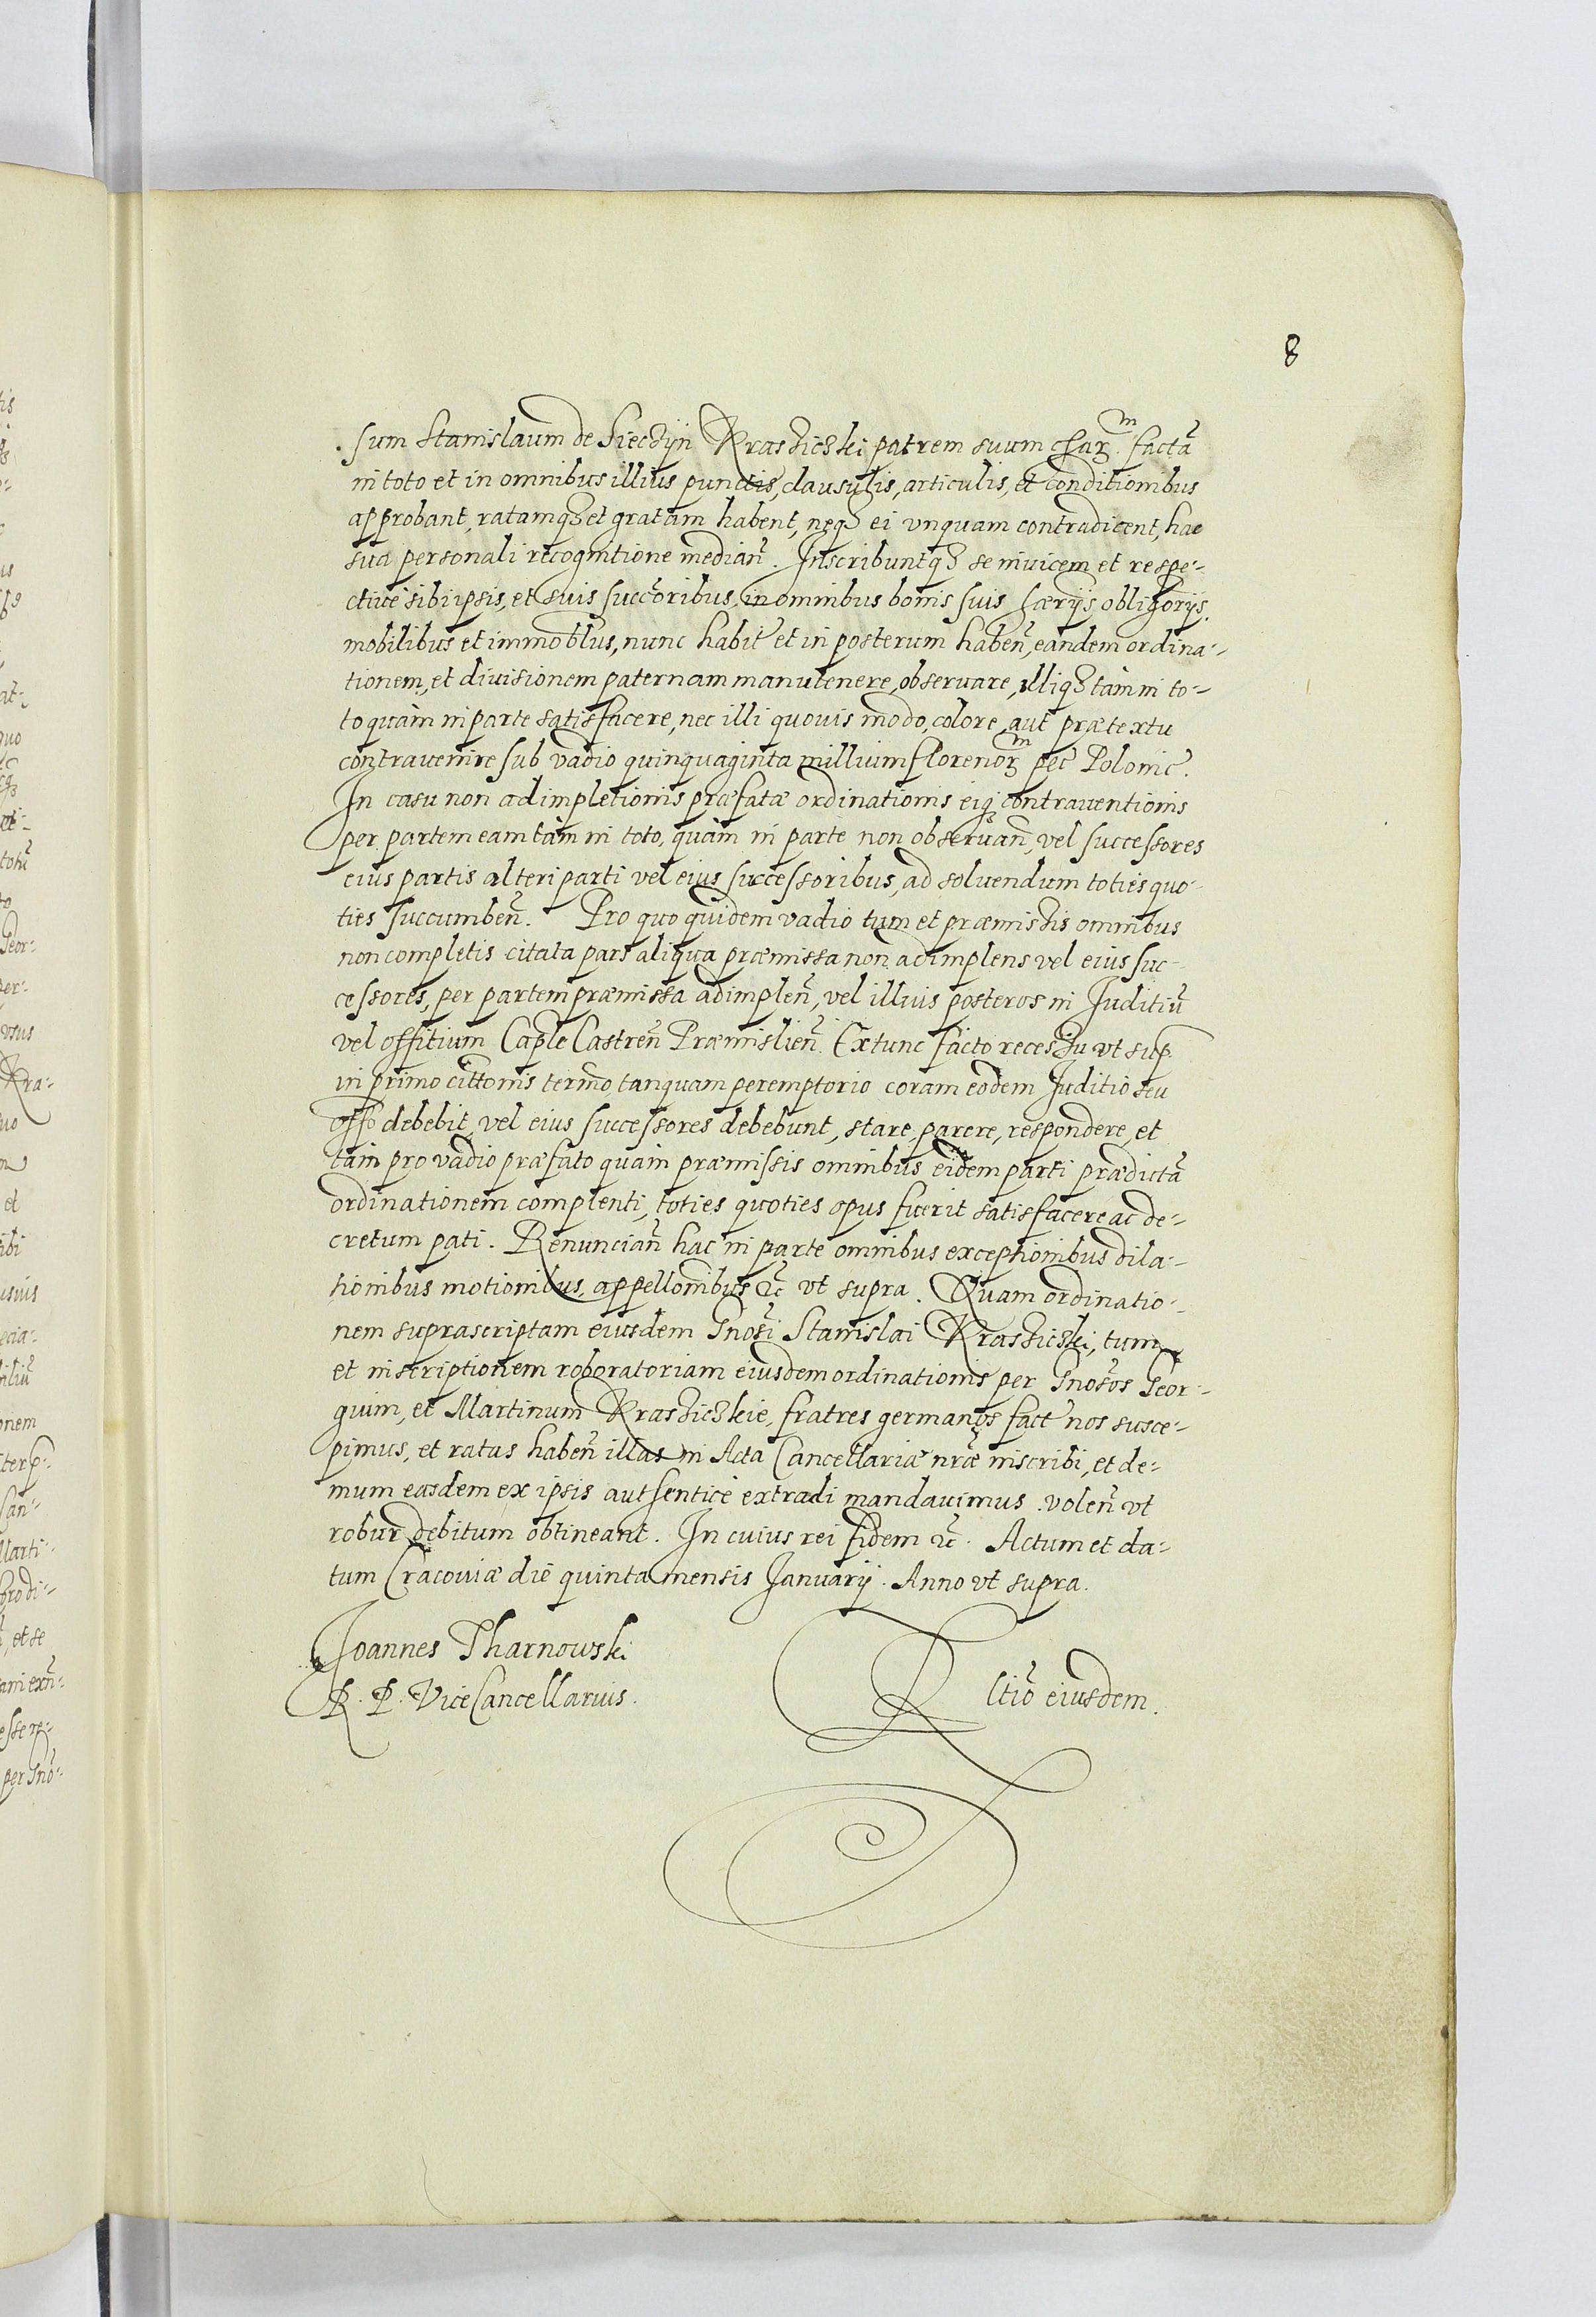 8
sum Stanislaum de Siecżyn Krasżicżki patrem suum char̃ m factã
in toto et in omnibus illius punctis, clausulis, articulis, et conditionibus
approbant, ratamqȝ et gratam habent, neqȝ ei vnquam contradicent, hac
sua personali recognitione median̄. Inscribuntqȝ se invicem et respe-
ctivè sibi ipsis, et suis succ̃oribus, in omnibus bonis suis hærijs, obligorijs,
mobilibus et immobłus, nunc habit̃ et in posterum haben̄, eandem ordina-
tionem, et divisionem paternam manutenere, observare, illiqȝ tàm in to-
to quàm in parte satisfacere, nec illi quovis modo, colore, aut prætextu
contravenire sub vadio quinquaginta millium florenor m pec̃ Polonic̃.
In casu non adimpletionis præfatæ ordinationis eiqȝ contraventionis
per partem eam tàm in toto, quàm in parte non observan̄, vel successores
eius partis alteri parti vel eius successoribus, ad solvendum toties quo-
ties succumben̄. Pro quo quidem vadio tum et præmissis omnibus
non completis citata pars aliqua præmissa non adimplens vel eius suc-
cessores, per partem præmissa adimplen̄, vel illius posteros in Juditiũ
vel offitium Capłe Castren̄ Præmislien̄. Extunc facto recessu vt sup.
in primo cittonis termo tanquam peremptorio coram eodem Juditio seu
offo debebit, vel eius successores debebunt, stare, parere, respondere, et
tàm pro vadio præfato quàm præmissis omnibus eidem parti prædictã
ordinationem complenti, toties quoties opus fuerit satisfacere ac de-
cretum pati. Renuncian̄ hac in parte omnibus exceptionibus dila-
tionibus motionibus, appellonibus ꝛc̃ vt supra. Quam ordinatio-
nem suprascriptam eiusdem Gnosi Stanislai Krasżicżki, tum
et inscriptionem roboratoriam eiusdem ordinationis per Gnosos Geor-
gium, et Martinum Krasżicżkie, fratres germanos fact̃ nos susce-
pimus, et ratas haben̄ illas in Acta Cancellariæ nr̃æ inscribi, et de-
mum easdem ex ipsis authenticè extradi mandavimus. volen̄ vt
robur debitum obtineant. In cuius rei fidem ꝛc̃. Actum et da-
tum Cracoviæ die quinta mensis Januarij. Anno vt supra.
Joannes Tharnowski
R. P. ViceCancellarius.
R ltio eiusdem.